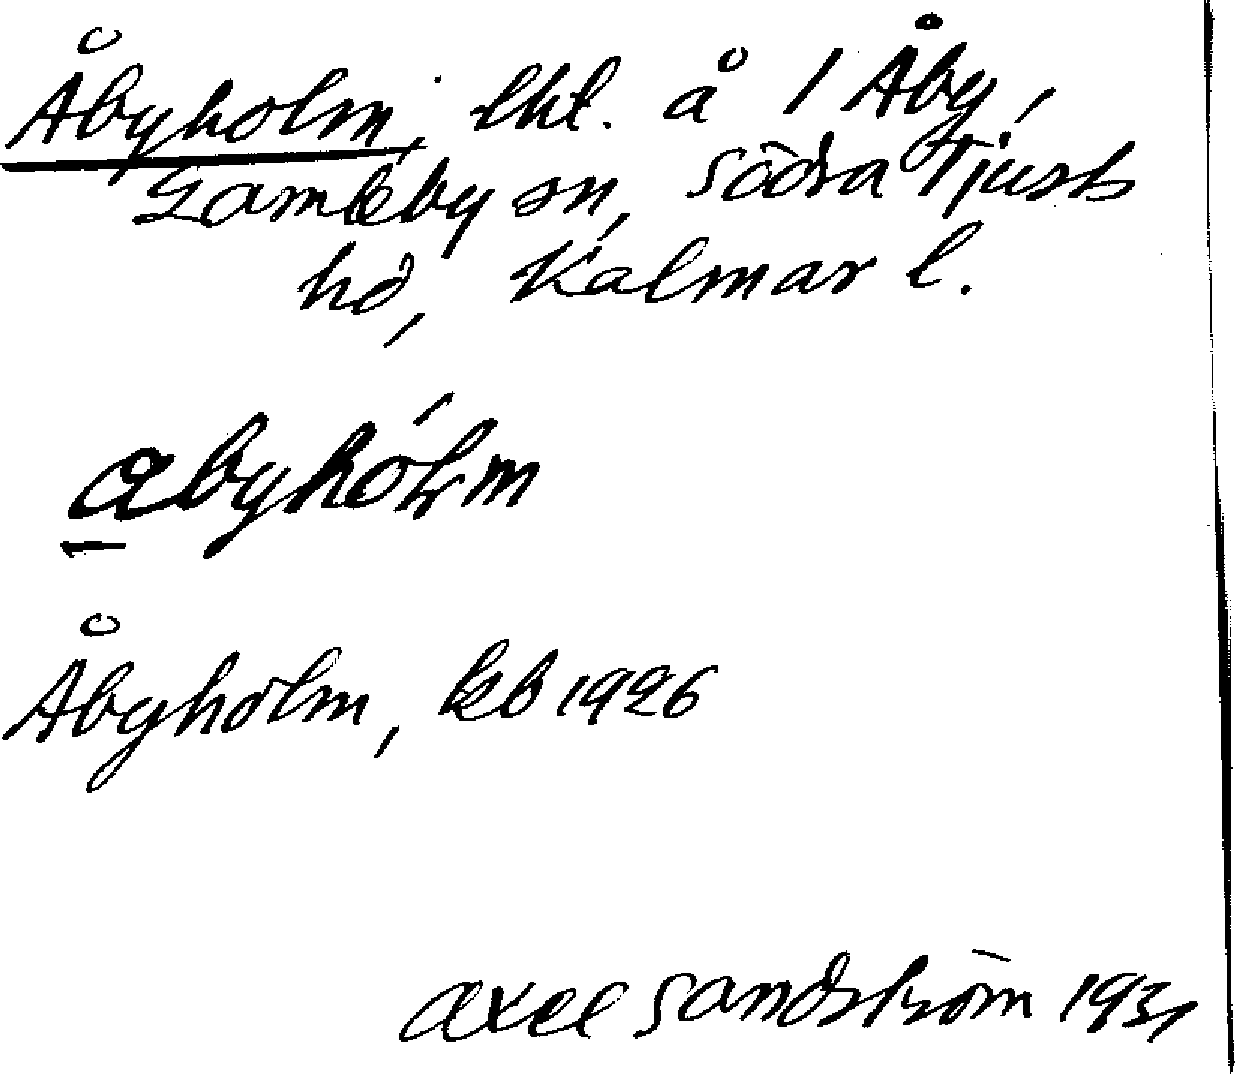 Åbyholm, lht. å 1 Åby,
Gamleby sn, Södra Tjusts
hd, Kalmar l.
åbyhólm
Åbyholm, kb 1926
Axel Sandström 1931